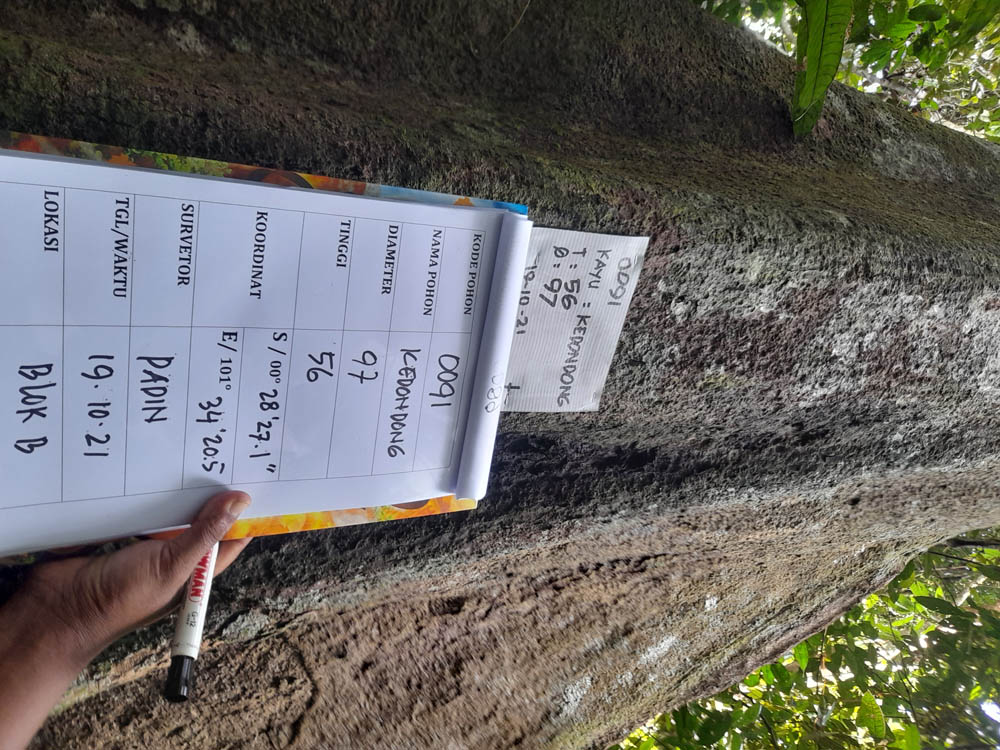 0091
KAYU : KEDONDONG
T : 56
Ø : 97
19-10-21
KODE POHON 0091
NAMA POHON KEDONDONG
DIAMETER 97
TINGGI 56
KOORDINAT S / 00° 28'27.1"
E/ 101° 34'20.5
SURVETOR PADIN
TGL/WAKTU 19.10.21
LOKASI BLOK B
OWMAN G-12